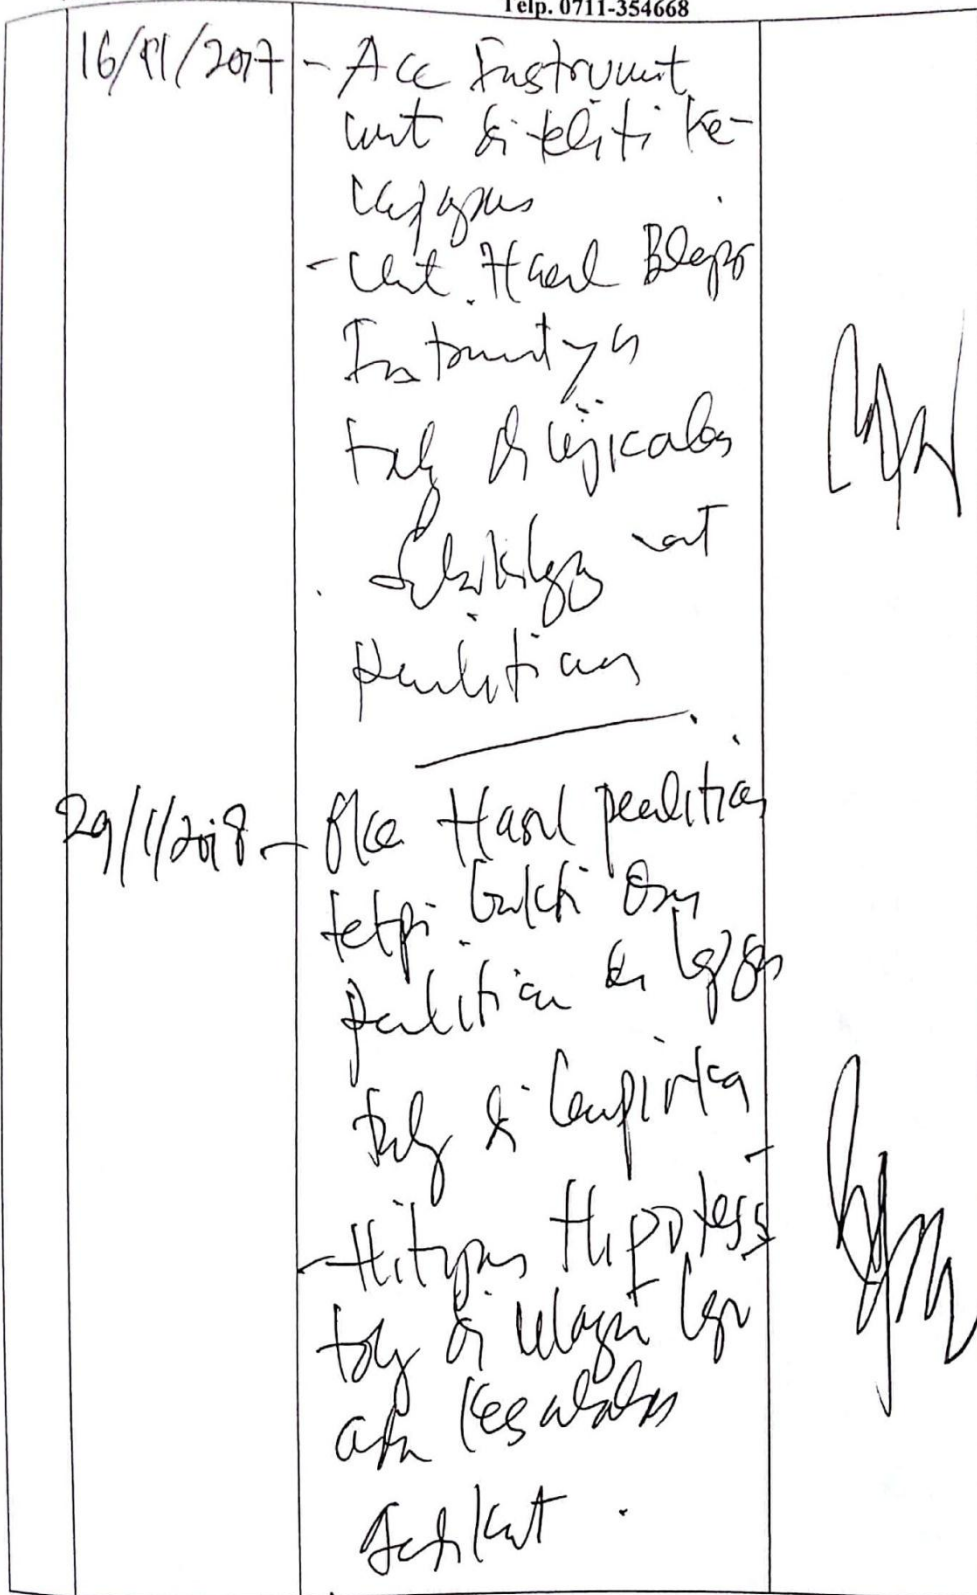 Telp. 0711-354668
16/11/2017 - Acc Instrument
unt diteliti ke-
lapangan
- Unt. Hasil
Instrument yg
tlg di ujicobakan
unt
penelitian
29/1/2018 - Acc Hasil penelitian
tetapi bukti
penelitian di
tlg di lampirkan
- Hitungan Hipotesis
tlg di ulangi lagi
ada kesalahan
sedikit.